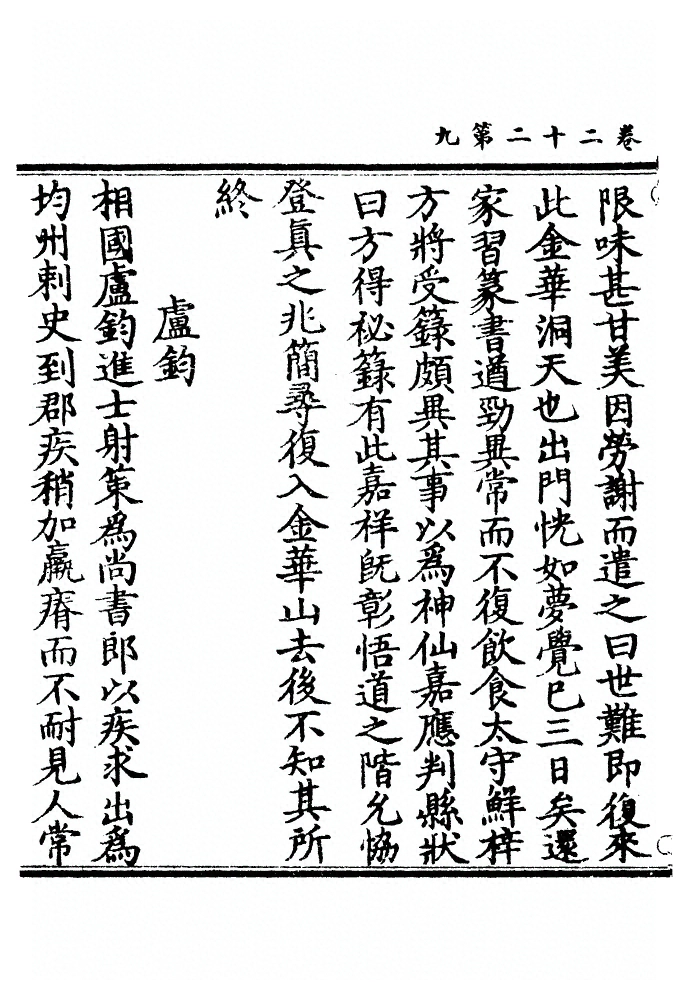 卷二十二第九
限味甚甘美因勞謝而遣之曰世難即復來
此金華洞天也出門恍如夢覺已三日矣還
家習篆書遒勁異常而不復飲食太守鮮梓
方將受籙頗異其事以爲神仙嘉應判縣狀
曰方得秘籙有此嘉祥旣彰悟道之階允恊
登眞之兆簡尋復入金華山去後不知其所
終
盧鈞
相國盧鈞進士射策爲尚書郎以疾求出爲
均州剌史到郡疾稍加羸瘠而不耐見人常